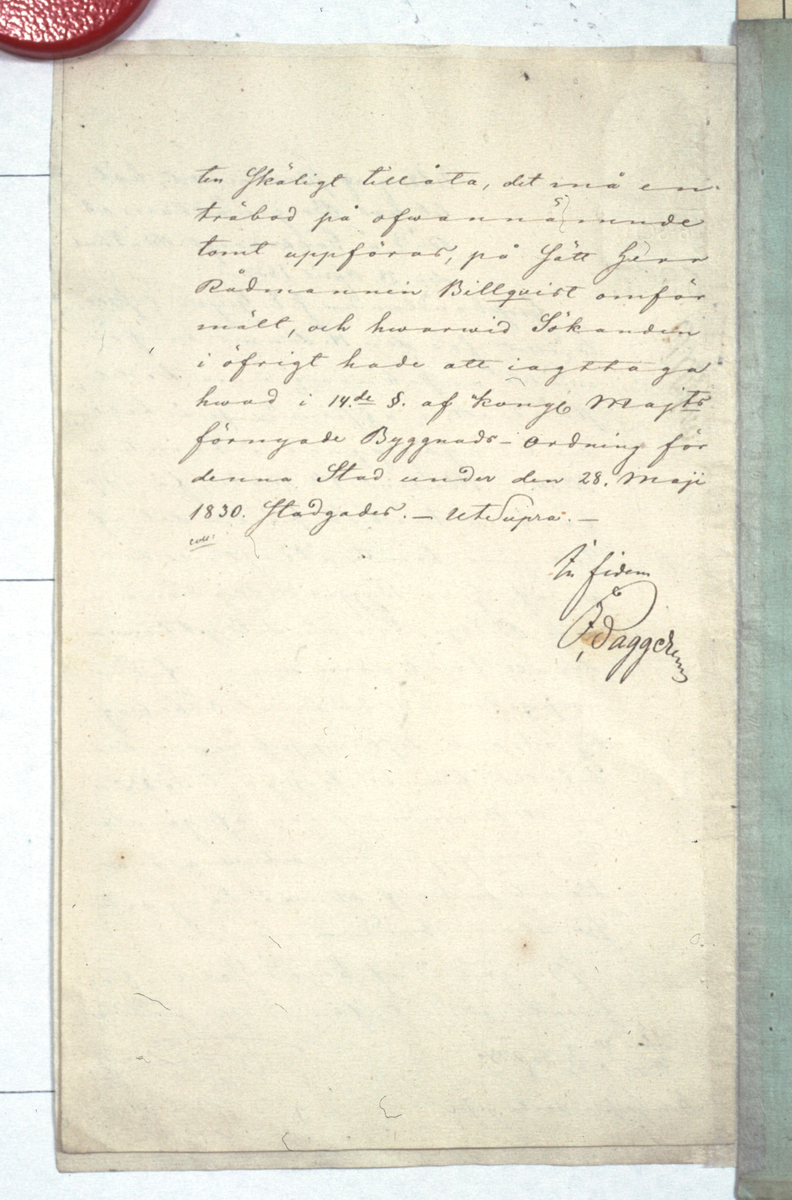 ten skäligt tillåta, det må en
träbod på ofwannämnde
tomt uppföras, på sätt Herr
Rådmannen Billqvist omför
mält, och hwarwid Sökanden
i öfrigt hade att iagttaga
hwad i 14.de §. af Kongl Majts
förnyade Byggnads-Ordning för
denna Stad under den 28. Maji
1830. stadgades. — Ut Supra. —
coll:
In fidem